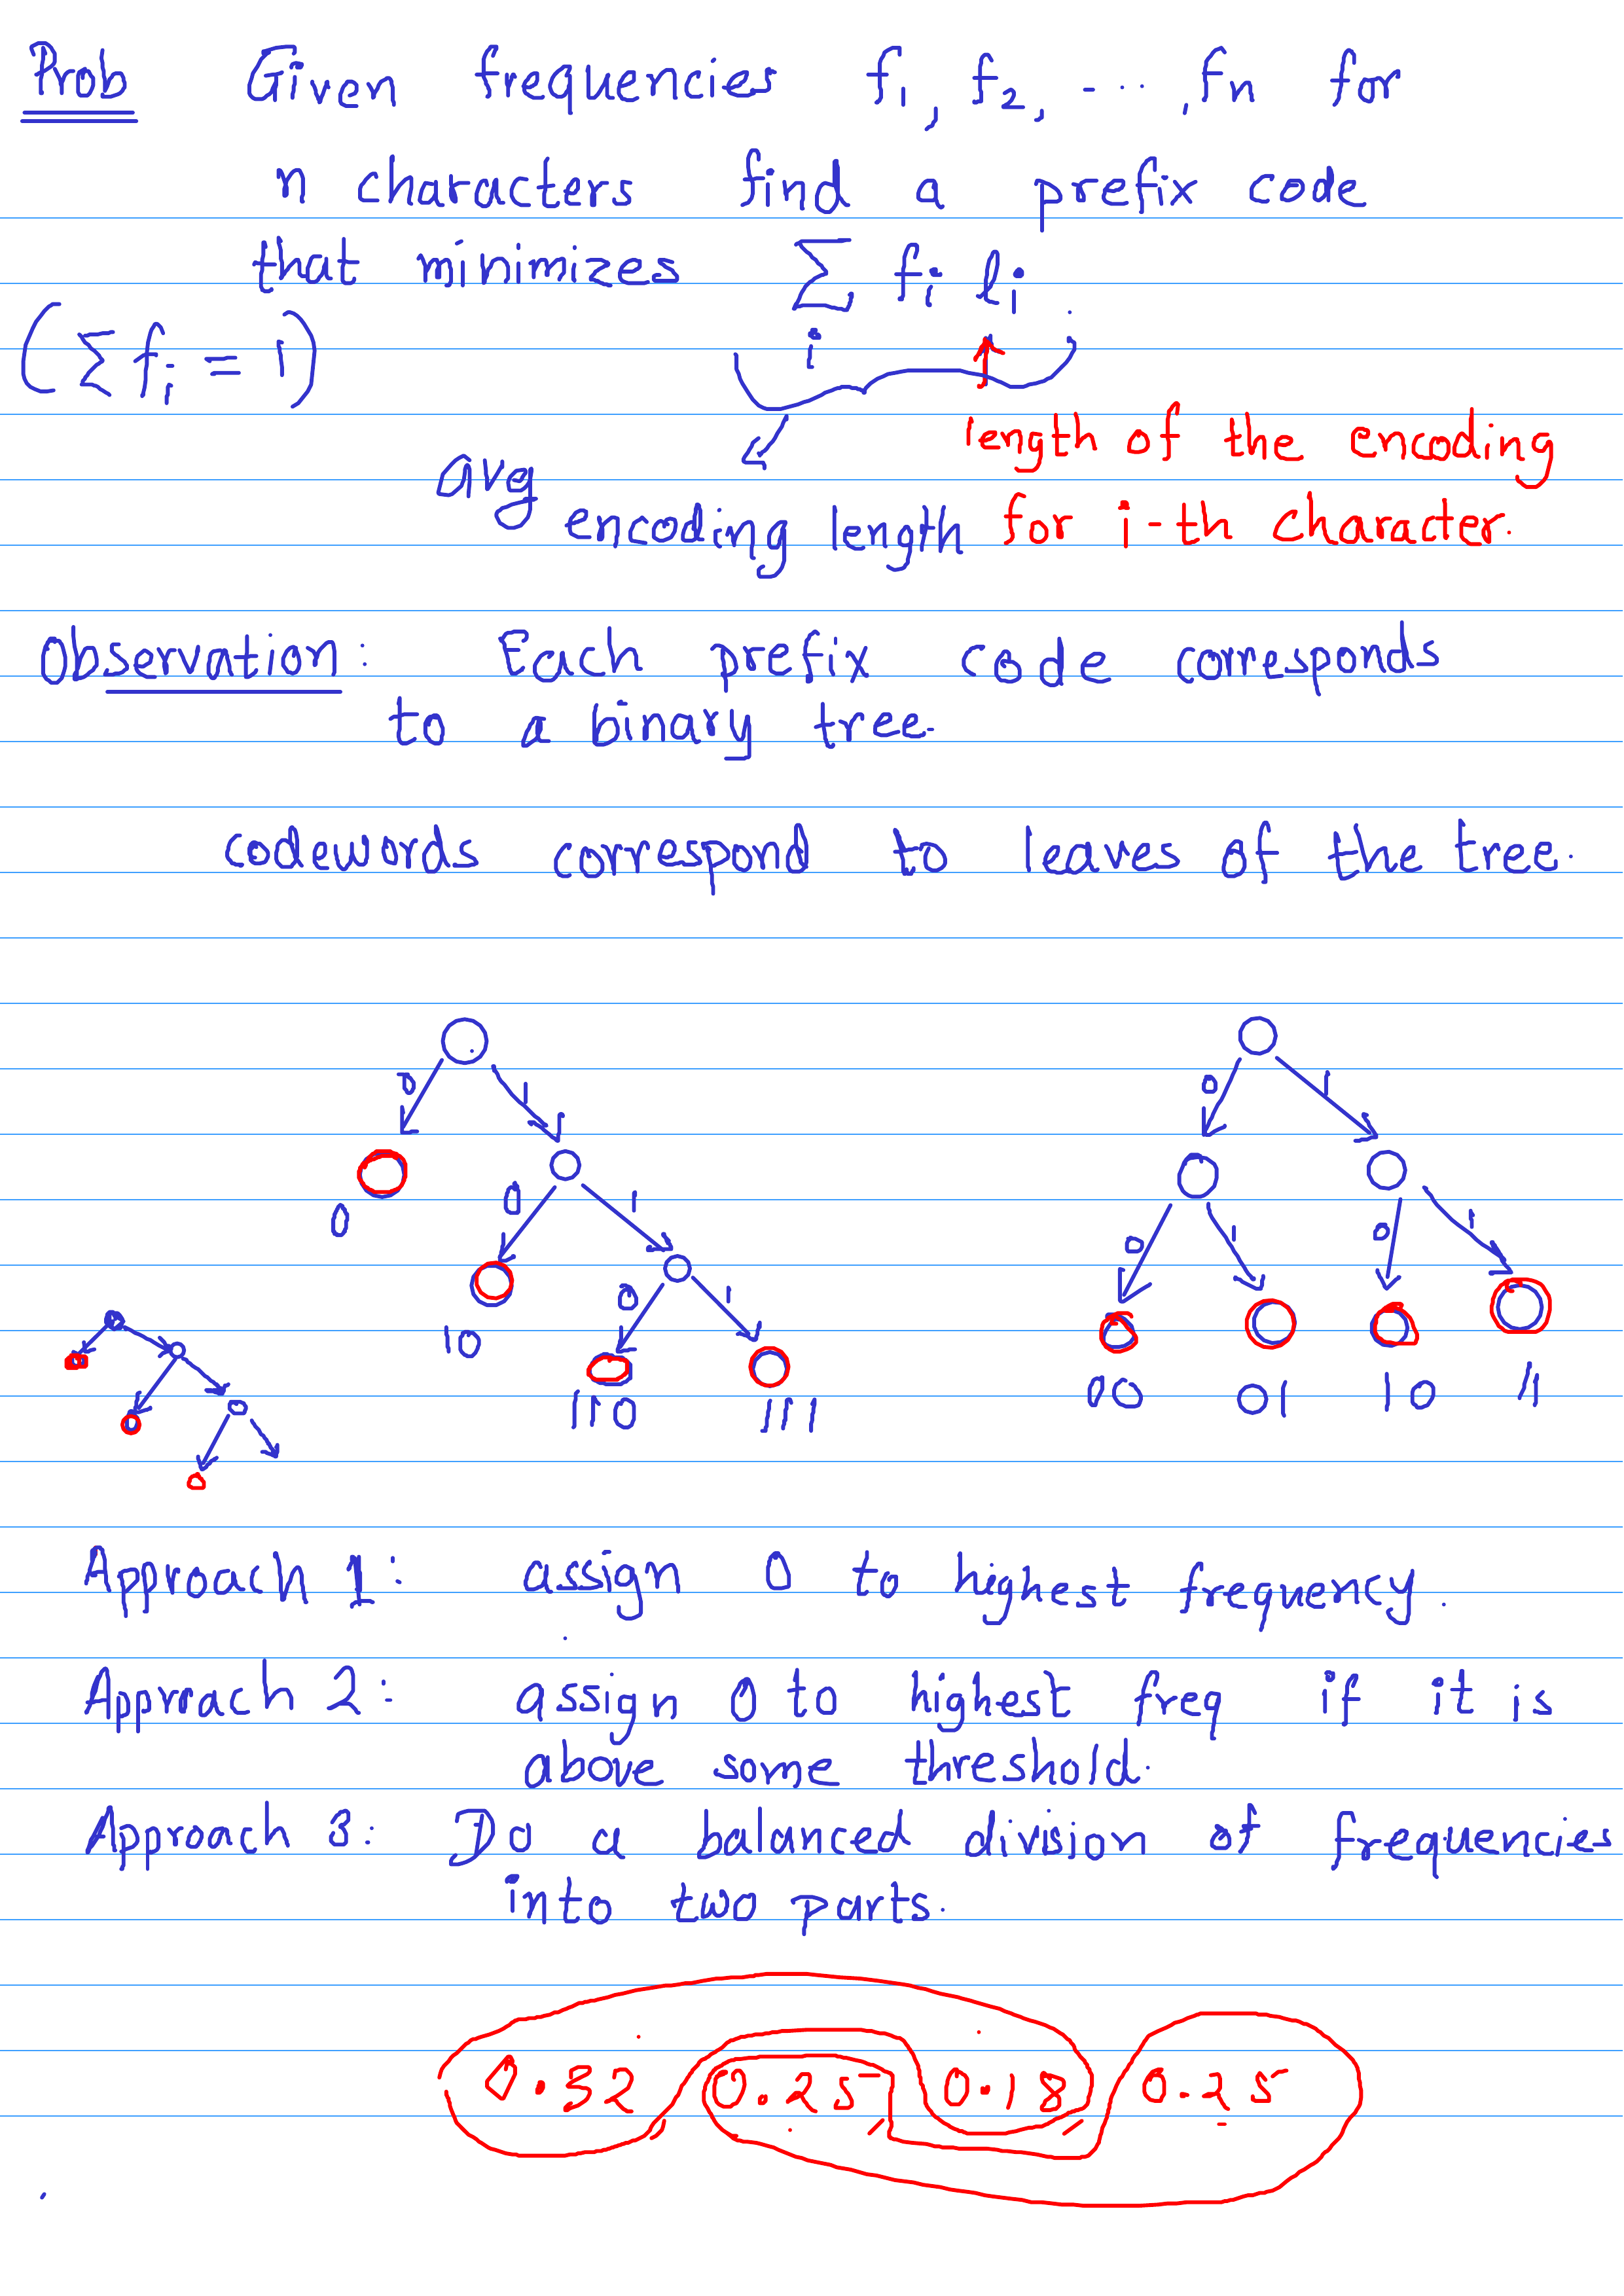 Prob Given frequencies f1, f2, - - - , fn for
n characters find a prefix code
that minimizes ∑ fi li
i
(∑ fi = 1)
length of the encoding
for i-th character.
avg
encoding length
Observation: Each prefix code corresponds
to a binary tree.
codewords correspond to leaves of the tree.
0 1 0 1
0 0 1 0 1 0 1
10 0 1
110 111 00 01 10 11
Approach 1: assign 0 to highest frequency.
Approach 2: assign 0 to highest freq if it is
above some threshold.
Approach 3: Do a balanced division of frequencies
into two parts.
0.32, 0.25, 0.18, 0.25